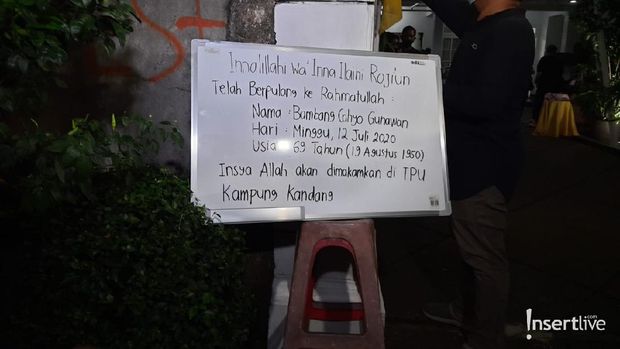 Inna'lillahi Wa' Inna Ilaihi Rojiun
Telah Berpulang ke Rahmatullah :
Nama : Bambang Cahyo Gunawan
Hari : Minggu, 12 Juli 2020
Usia : 69 Tahun (19 Agustus 1950)
Insya Allah akan dimakamkan di TPU
Kampung Kandang
Insertlive.com